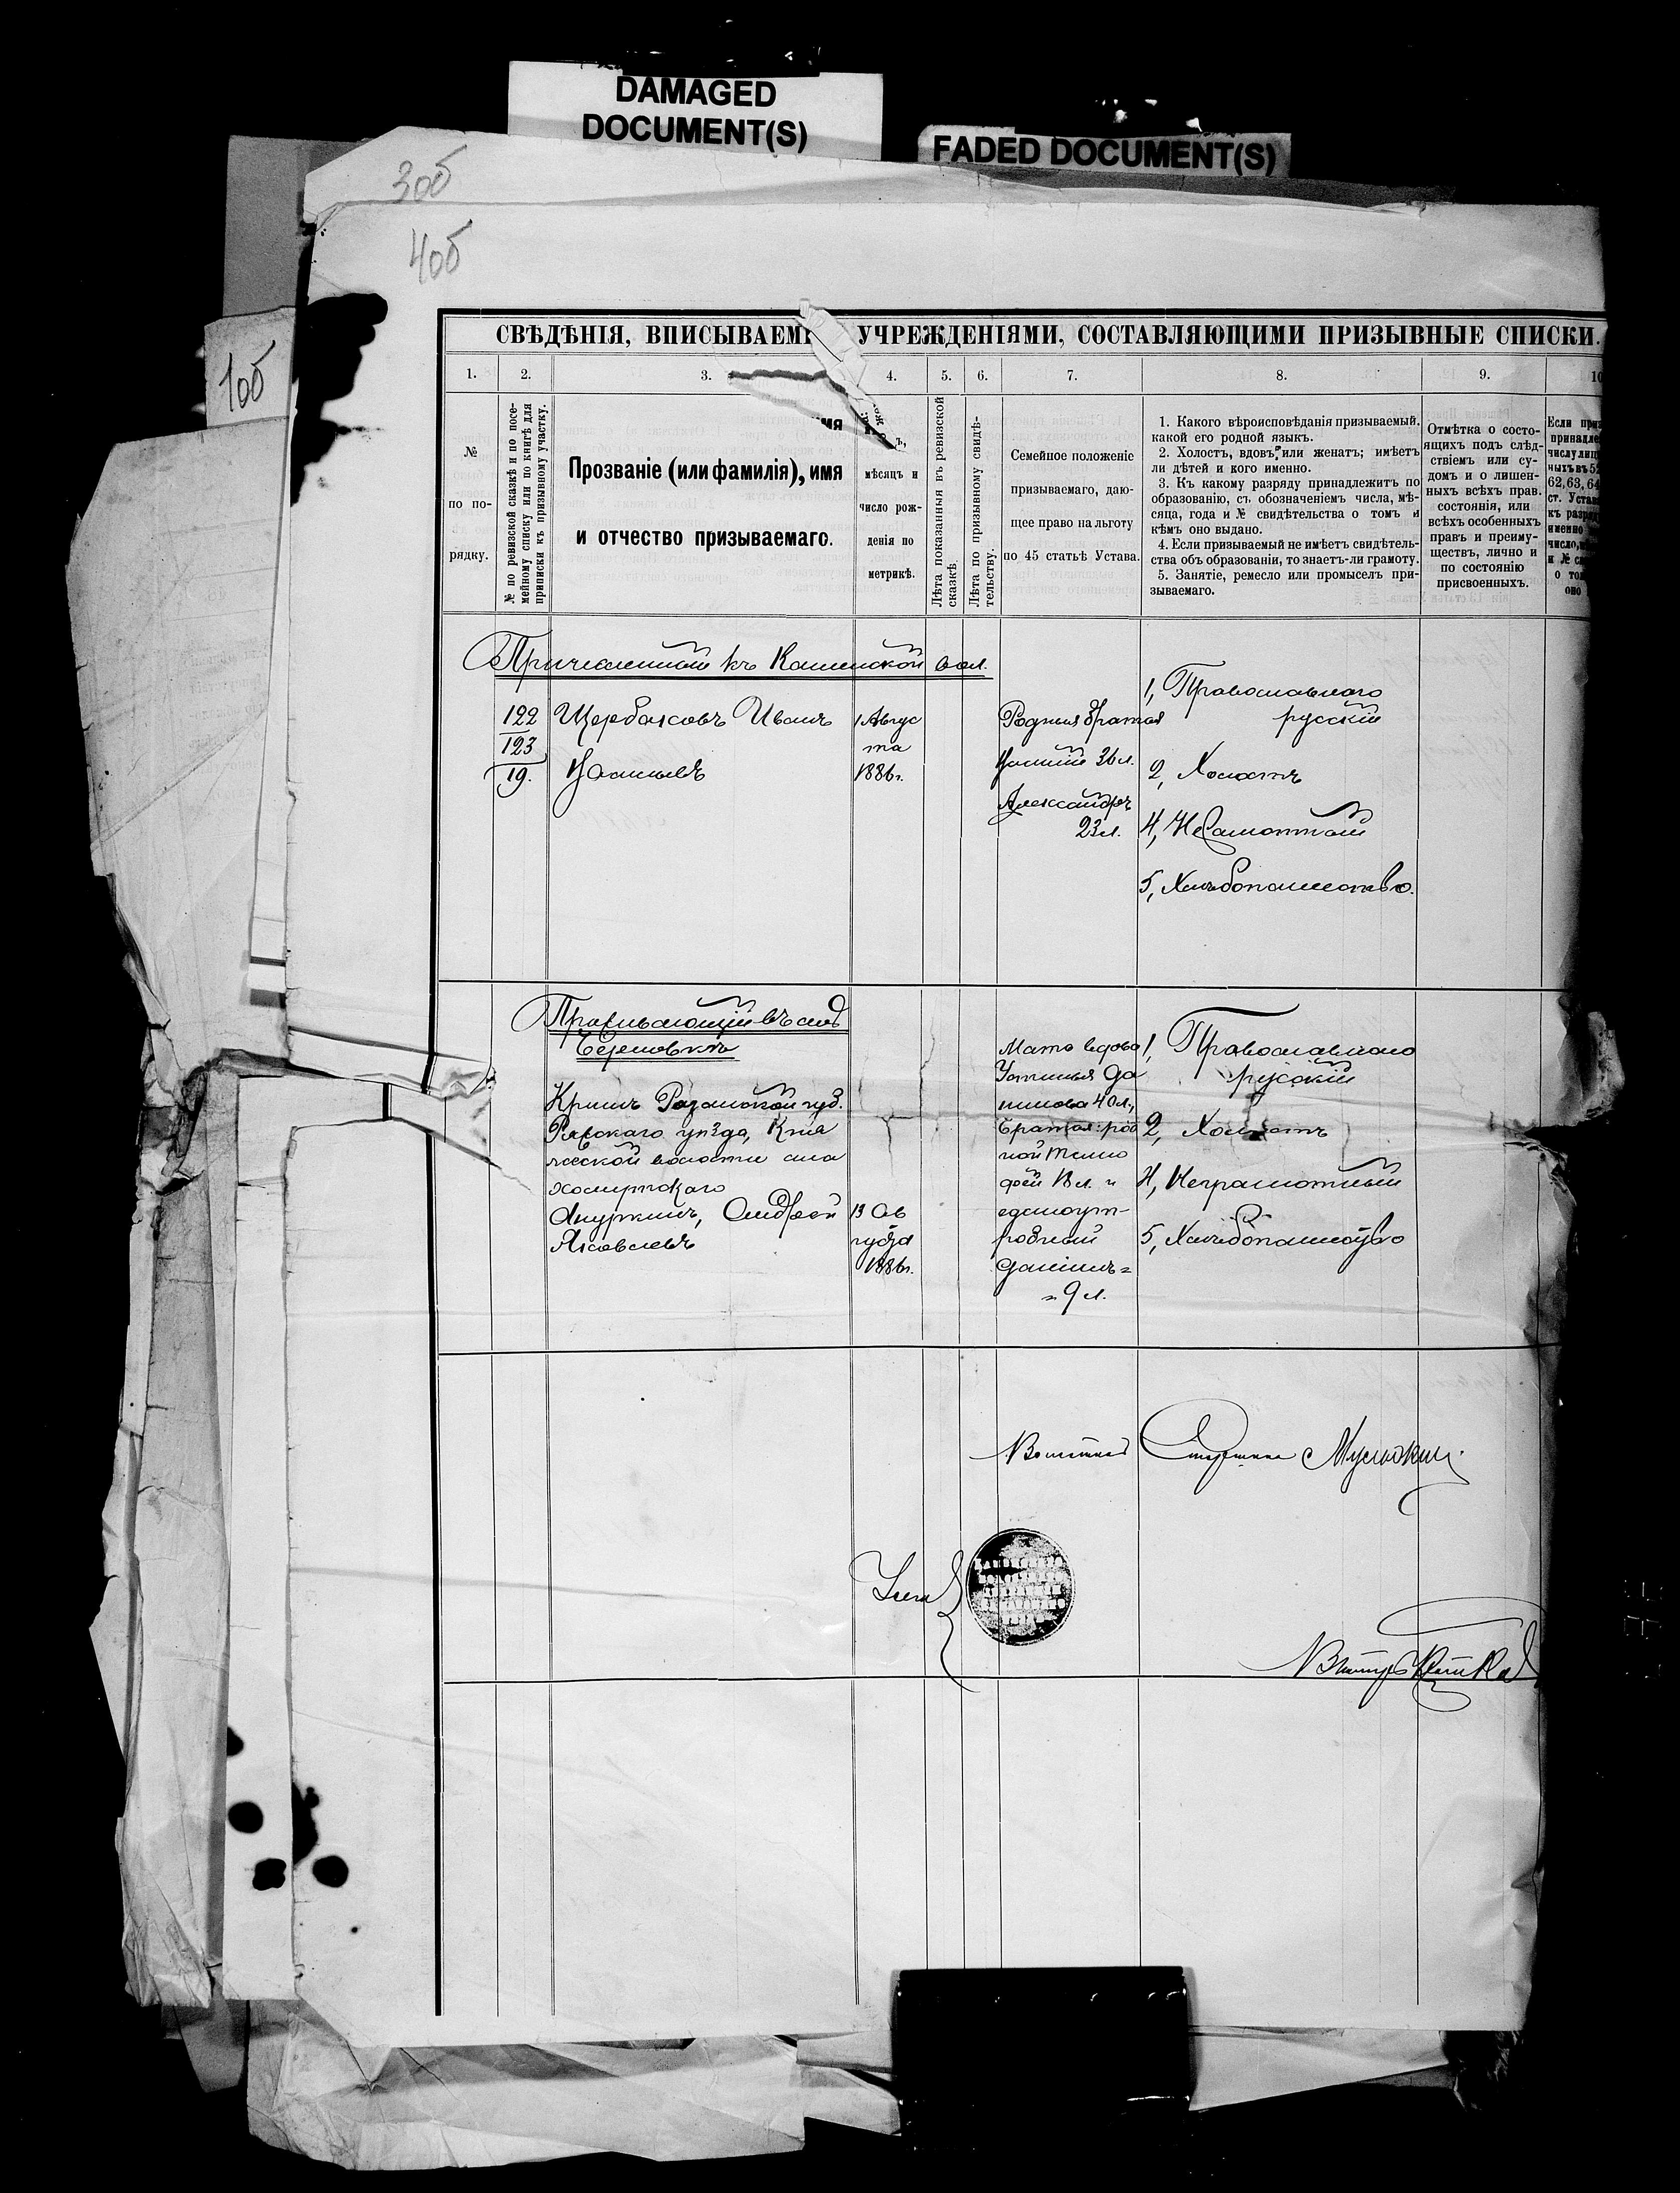 DAMAGED
DOCUMENT(S)
FADED DOCUMENT(S)
3об
4об
1об
СВѢДѢНІЯ, ВПИСЫВАЕМ УЧРЕЖДЕНІЯМИ, СОСТАВЛЯЮЩИМИ ПРИЗЫВНЫЕ СПИСКИ.
1. 2. 3. 4. 5. 6. 7. 8. 9. 10
№
по по-
рядку.
№ по ревизской сказкѣ и по посе-
мейному списку или по книгѣ для
приписки къ призывному участку.
мя
Прозваніе (или фамилія), имя
и отчество призываемаго.
мѣсяцъ и
число рож-
денія по
метрикѣ.
Лѣта показанныя въ ревизской
сказкѣ.
Лѣта по призывному свидѣ-
тельству.
Семейное положеніе
призываемаго, даю-
щее право на льготу
по 45 статьѣ Устава.
1. Какого вѣроисповѣданія призываемый,
какой его родной языкъ.
2. Холостъ, вдовъ, или женатъ; имѣетъ
ли дѣтей и кого именно.
3. Къ какому разряду принадлежитъ по
образованію, съ обозначеніемъ числа, мѣ-
сяца, года и № свидѣтельства о томъ и
кѣмъ оно выдано.
4. Если призываемый не имѣетъ свидѣтель-
ства объ образованіи, то знаетъ-ли грамоту.
5. Занятіе, ремесло или промыселъ при-
зываемаго.
Отмѣтка о состо-
ящихъ подъ слѣд-
ствіемъ или су-
домъ и о лишен-
ныхъ всѣхъ прав.
состоянія, или
всѣхъ особенныхъ
правъ и преиму-
ществъ, лично и
по состоянію
присвоенныхъ.
Если приз
принадле
числу лиц
ныхъ въ 5
62, 63, 64
ст. Устав
къ разряд
именно
число,
и № с
о то
оно
Причисленный къ Каменской вол.
122
123
19.
Щербаковъ Иванъ
1 Авгус
та
1886г.
Родныя братья
36 л.
Александръ
23 л.
1, Православнаго
русскій
2, Холостъ
4, Неграмотный
5, Хлѣбопашество.
Проживающій въ
Кр-нъ Рязанской губ.
Ряжскаго уѣзда,
волости села
Андрей
Яковлевъ
13 Ав
густа
1886г.
Мать вдова
Устинья Да
нилова 40 л.,
братья: род
ной Тимо
фей 13 л. и
единоут-
робный
Даніилъ=
= 9 л.
1, Православнаго
русскій
2, Холостъ
4, Неграмотный
5, Хлѣбопашество
Волостной Старшина